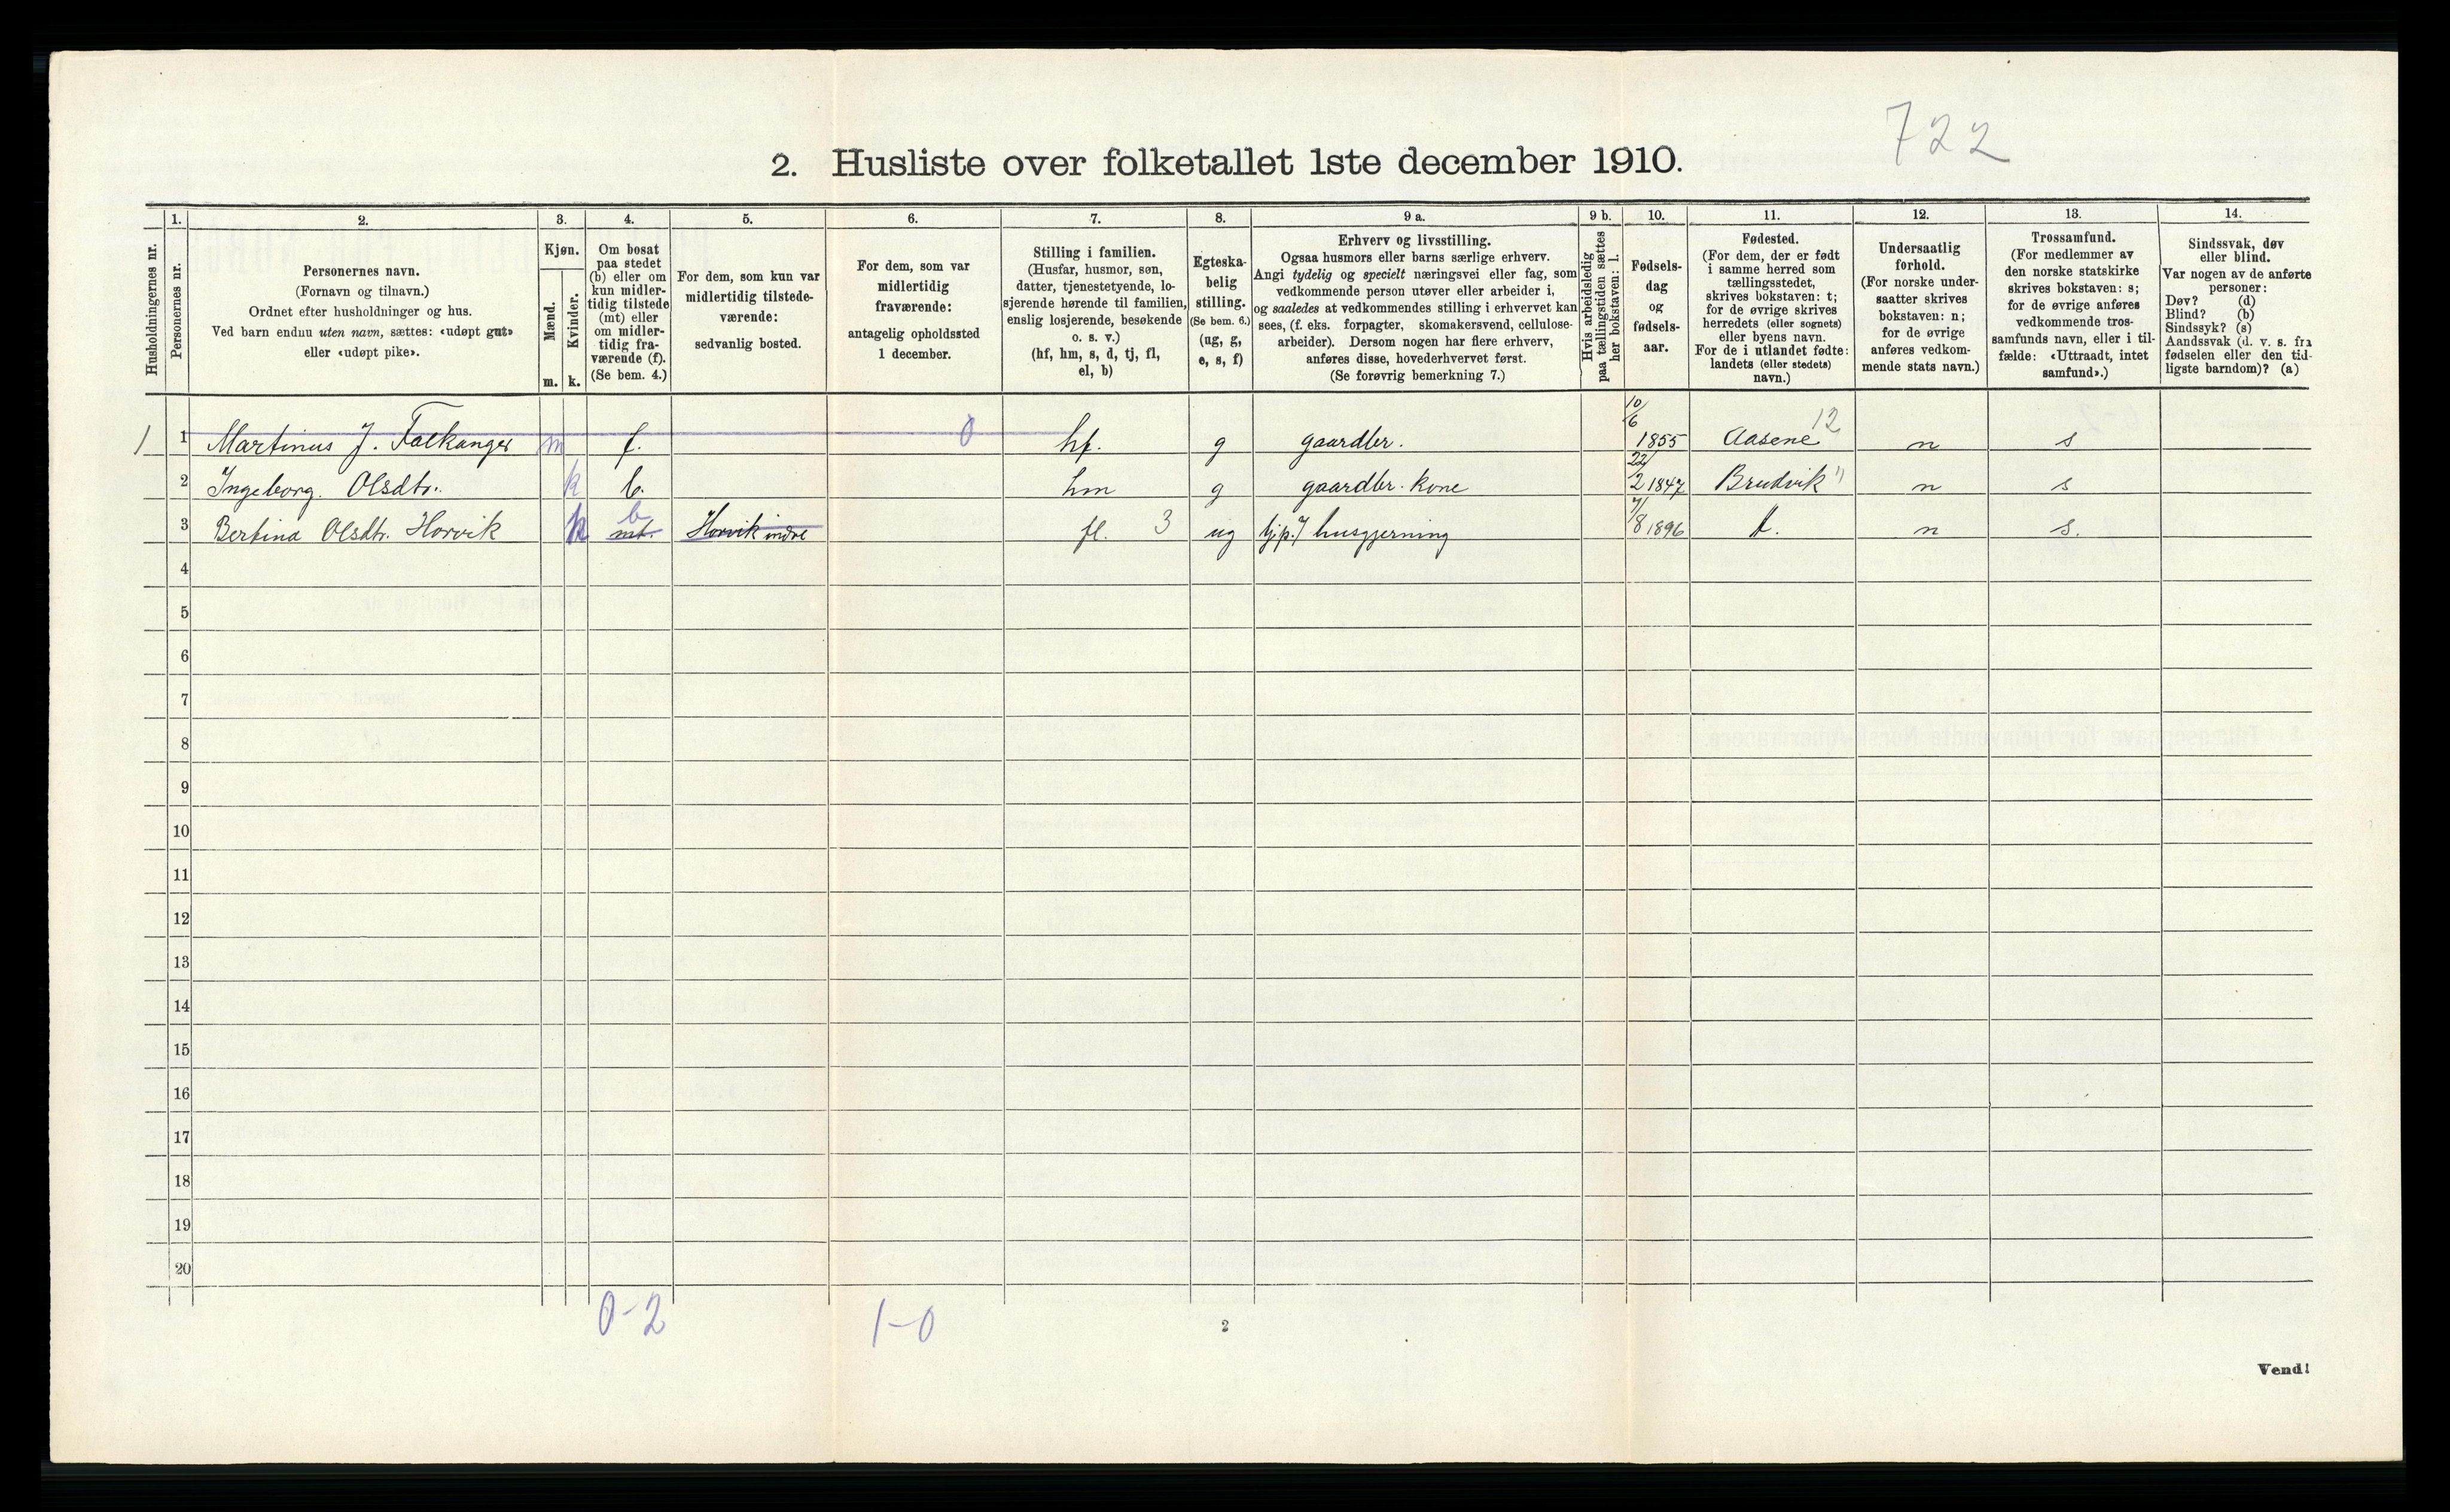 722
2. Husliste over folketallet 1ste december 1910.
Husholdningernes nr.
1.
Personernes nr.
2.
Personernes navn.
(Fornavn og tilnavn.)
Ordnet efter husholdninger og hus.
Ved barn endnu uten navn, sættes: «udøpt gut»
eller «udøpt pike».
3.
Kjøn.
Mænd.
Kvinder.
m.
k.
4.
Om bosat
paa stedet
(b) eller om
kun midler-
tidig tilstede
(mt) eller
om midler-
tidig fra-
værende (f).
(Se bem. 4.)
5.
For dem, som kun var
midlertidig tilstede-
værende:
sedvanlig bosted.
6.
For dem, som var
midlertidig
fraværende:
antagelig opholdssted
1 december.
7.
Stilling i familien.
(Husfar, husmor, søn,
datter, tjenestetyende, lo-
sjerende hørende til familien,
enslig losjerende, besøkende
o. s. v.)
(hf, hm, s, d, tj, fl,
el, b)
8.
Egteska-
belig
stilling.
(Se bem. 6.)
(ug, g,
e, s, f)
9 a.
Erhverv og livsstilling.
Ogsaa husmors eller barns særlige erhverv.
Angi tydelig og specielt næringsvei eller fag, som
vedkommende person utøver eller arbeider i,
og saaledes at vedkommendes stilling i erhvervet kan
sees, (f. eks. forpagter, skomakersvend, cellulose-
arbeider). Dersom nogen har flere erhverv,
anføres disse, hovederhvervet først.
(Se forøvrig bemerkning 7.)
9 b.
Hvis arbeidsledig
paa tællingstiden sættes
her bokstaven: l.
10.
Fødsels-
dag
og
fødsels-
aar.
11.
Fødested.
(For dem, der er født
i samme herred som
tællingsstedet,
skrives bokstaven: t;
for de øvrige skrives
herredets (eller sognets)
eller byens navn.
For de i utlandet fødte:
landets (eller stedets)
navn.)
12.
Undersaatlig
forhold.
(For norske under-
saatter skrives
bokstaven: n;
for de øvrige
anføres vedkom-
mende stats navn.)
13.
Trossamfund.
(For medlemmer av
den norske statskirke
skrives bokstaven: s;
for de øvrige anføres
vedkommende tros-
samfunds navn, eller i til-
fælde: «Uttraadt, intet
samfund».)
14.
Sindssvak, døv
eller blind.
Var nogen av de anførte
personer:
Døv? (d)
Blind? (b)
Sindssyk? (s)
Aandssvak (d. v. s. fra
fødselen eller den tid-
ligste barndom)? (a)
1 1 Martinus J. Falkanger m f. 0 hf. g gaardbr. 10/6 1855 Aasene 12 n s
2 Ingeborg. Olsdtr. k b. hm g gaardbr. kone 22/2 1847 Brudvik ") n s
3 Bertina Olsdtr. Horvik k mt. b Horvik indre fl. 3 ug husgjerning 7/8 1896 t. n s.
4
5
6
7
8
9
10
11
12
13
14
15
16
17
18
19
20
0-2 1-0
2
Vend!